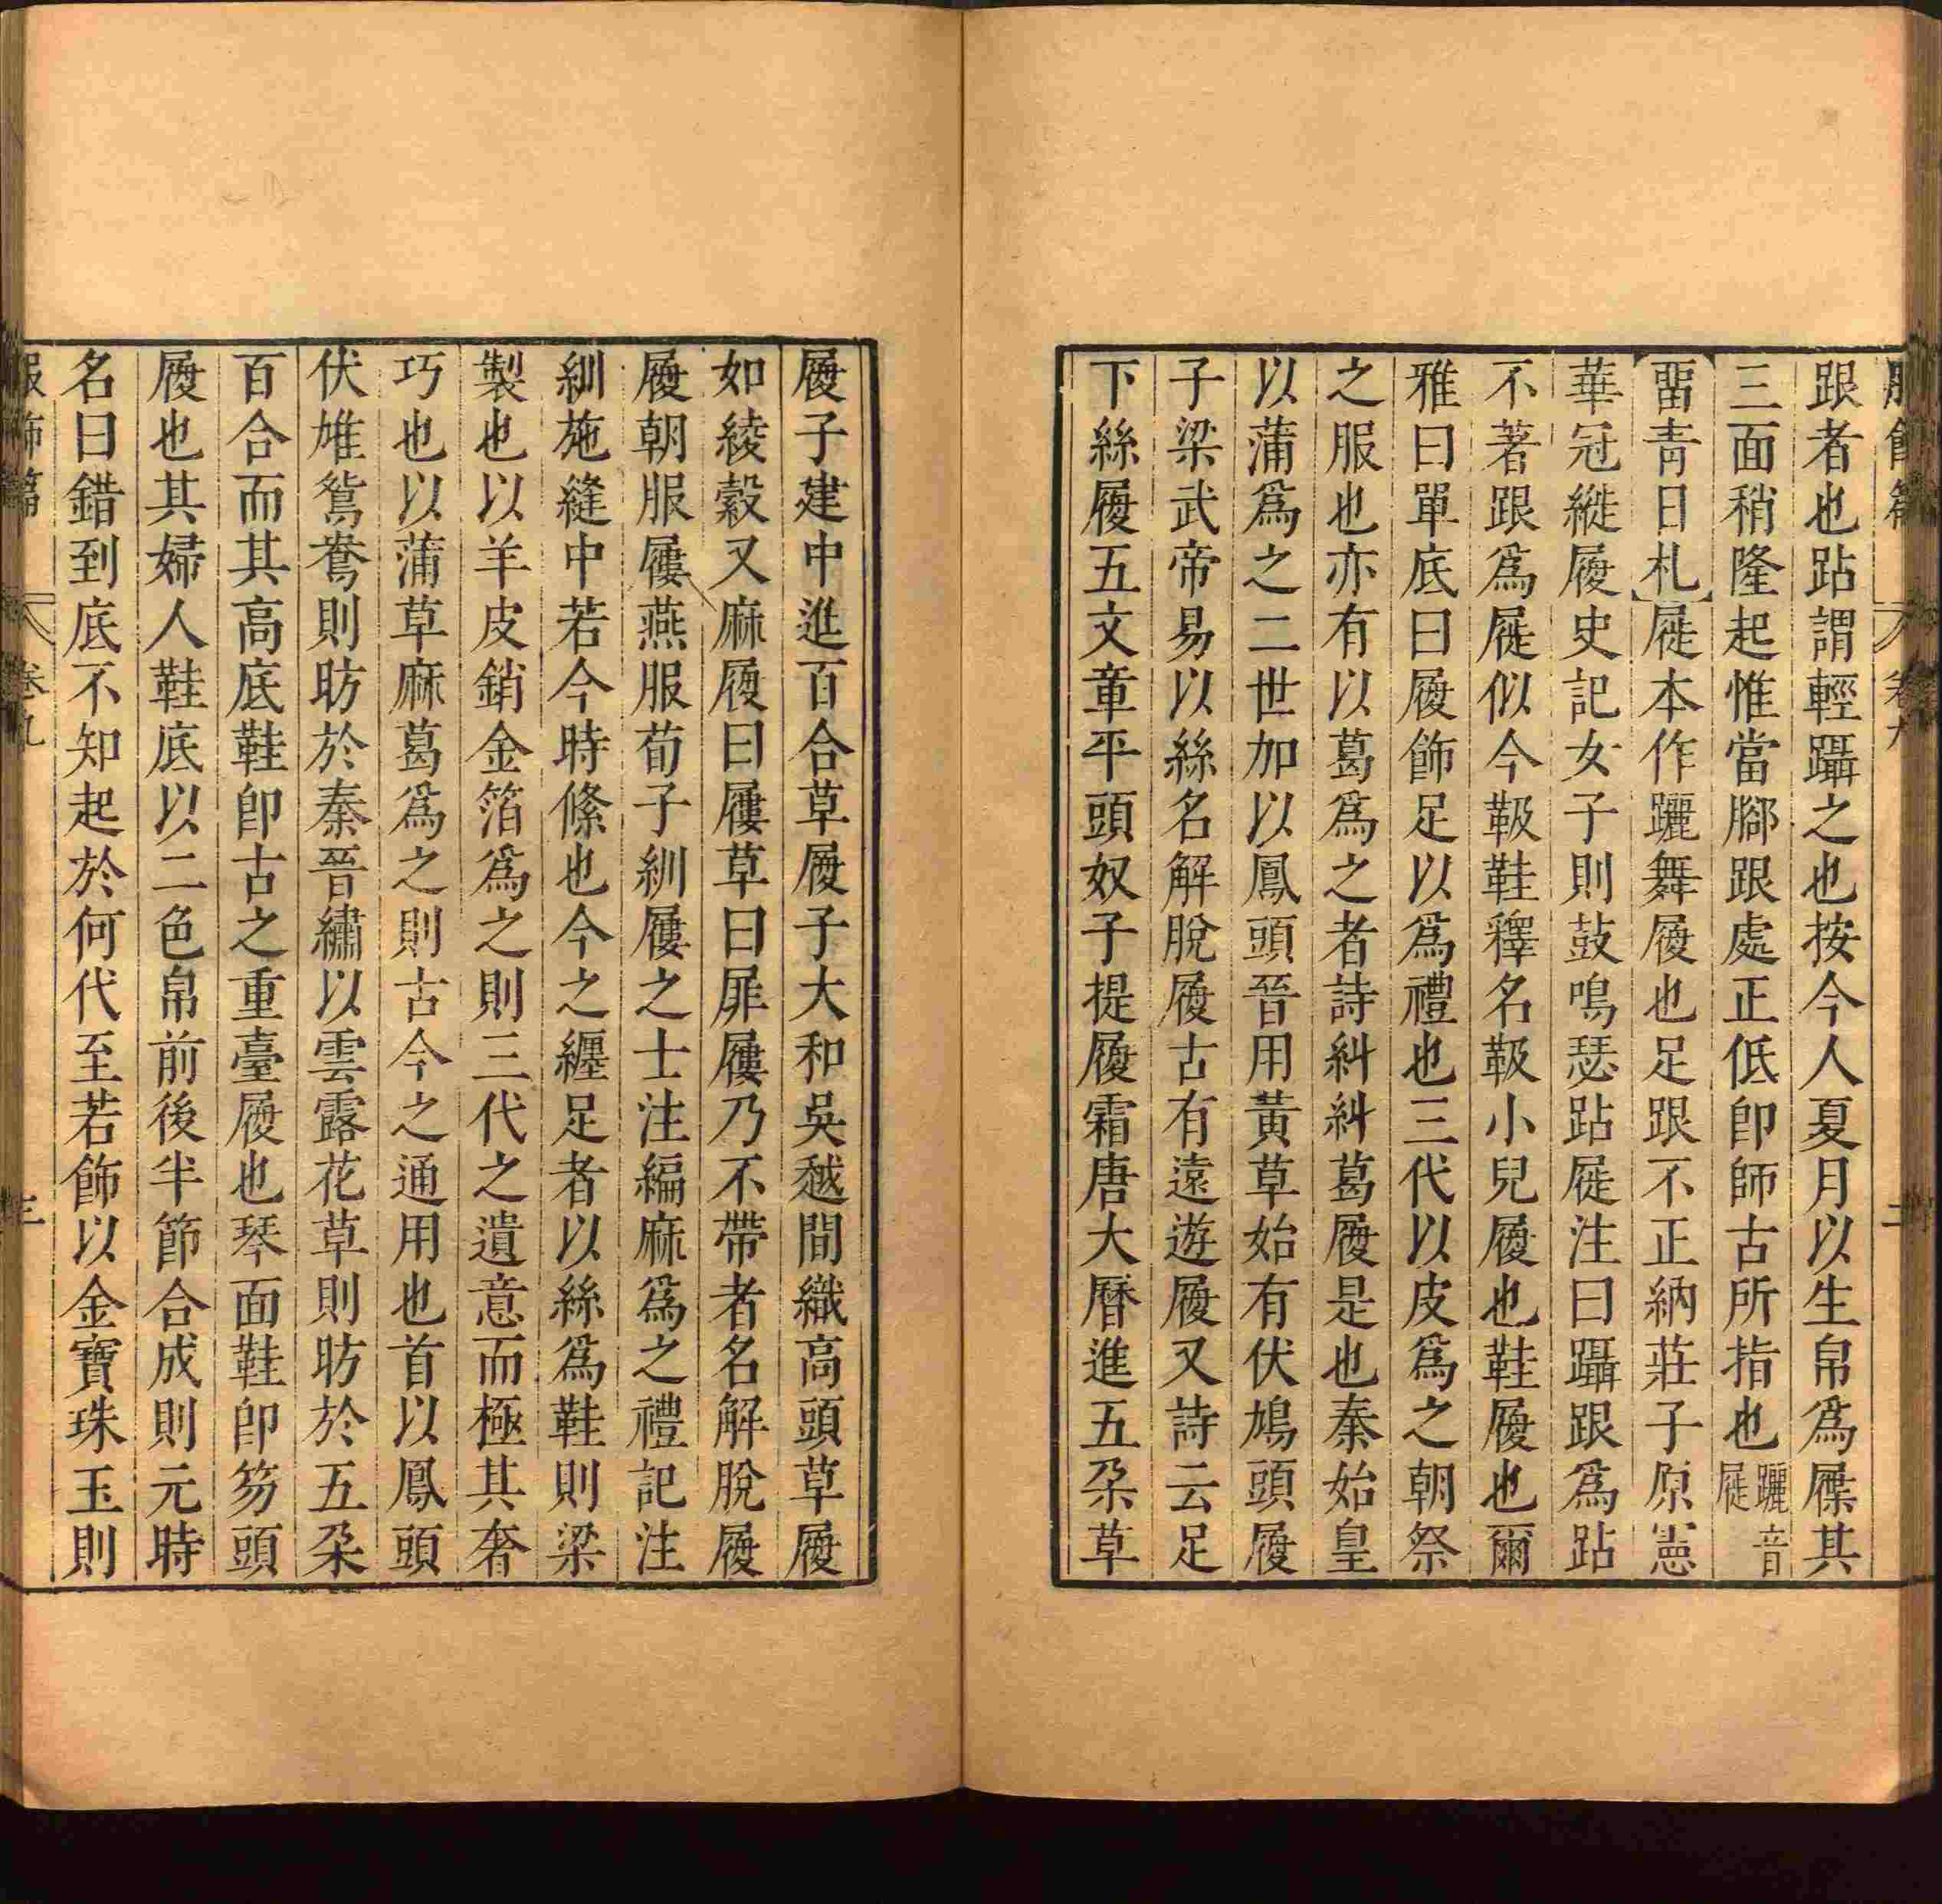 跟者也跕謂輕躡之也按今人夏月以生帛爲屧其
三面稍隆起惟當腳跟處正低卽師古所指也躧音屣
畱青日札屣本作躧舞履也足跟不正納莊子原憲
華冠縰履史記女子則鼓鳴瑟跕屣注曰躡跟爲跕
不著跟爲屣似今靸鞋釋名靸小兒履也鞋履也爾
雅曰單底曰履飾足以爲禮也三代以皮爲之朝祭
之服也亦有以葛爲之者詩糾糾葛屨是也秦始皇
以蒲爲之二世加以鳳頭晉用黃草始有伏鳩頭履
子梁武帝易以絲名解脫履古有遠遊履又詩云足
下絲履五文章平頭奴子提履霜唐大曆進五朶草
履子建中進百合草履子大和吳越間織高頭草履
如綾縠又麻履曰屨草曰屝屨乃不帶者名解脫履
履朝服屨燕服荀子紃屨之士注編麻爲之禮記注
紃施縫中若今時絛也今之纏足者以絲爲鞋則梁
製也以羊皮銷金箔爲之則三代之遺意而極其奢
巧也以蒲草麻葛爲之則古今之通用也首以鳳頭
伏雄鴛鴦則昉於秦晉繡以雲露花草則昉於五朶
百合而其高底鞋卽古之重臺履也琴面鞋卽笏頭
履也其婦人鞋底以二色帛前後半節合成則元時
名曰錯到底不知起於何代至若飾以金寶珠玉則
服飾篇 卷九 三